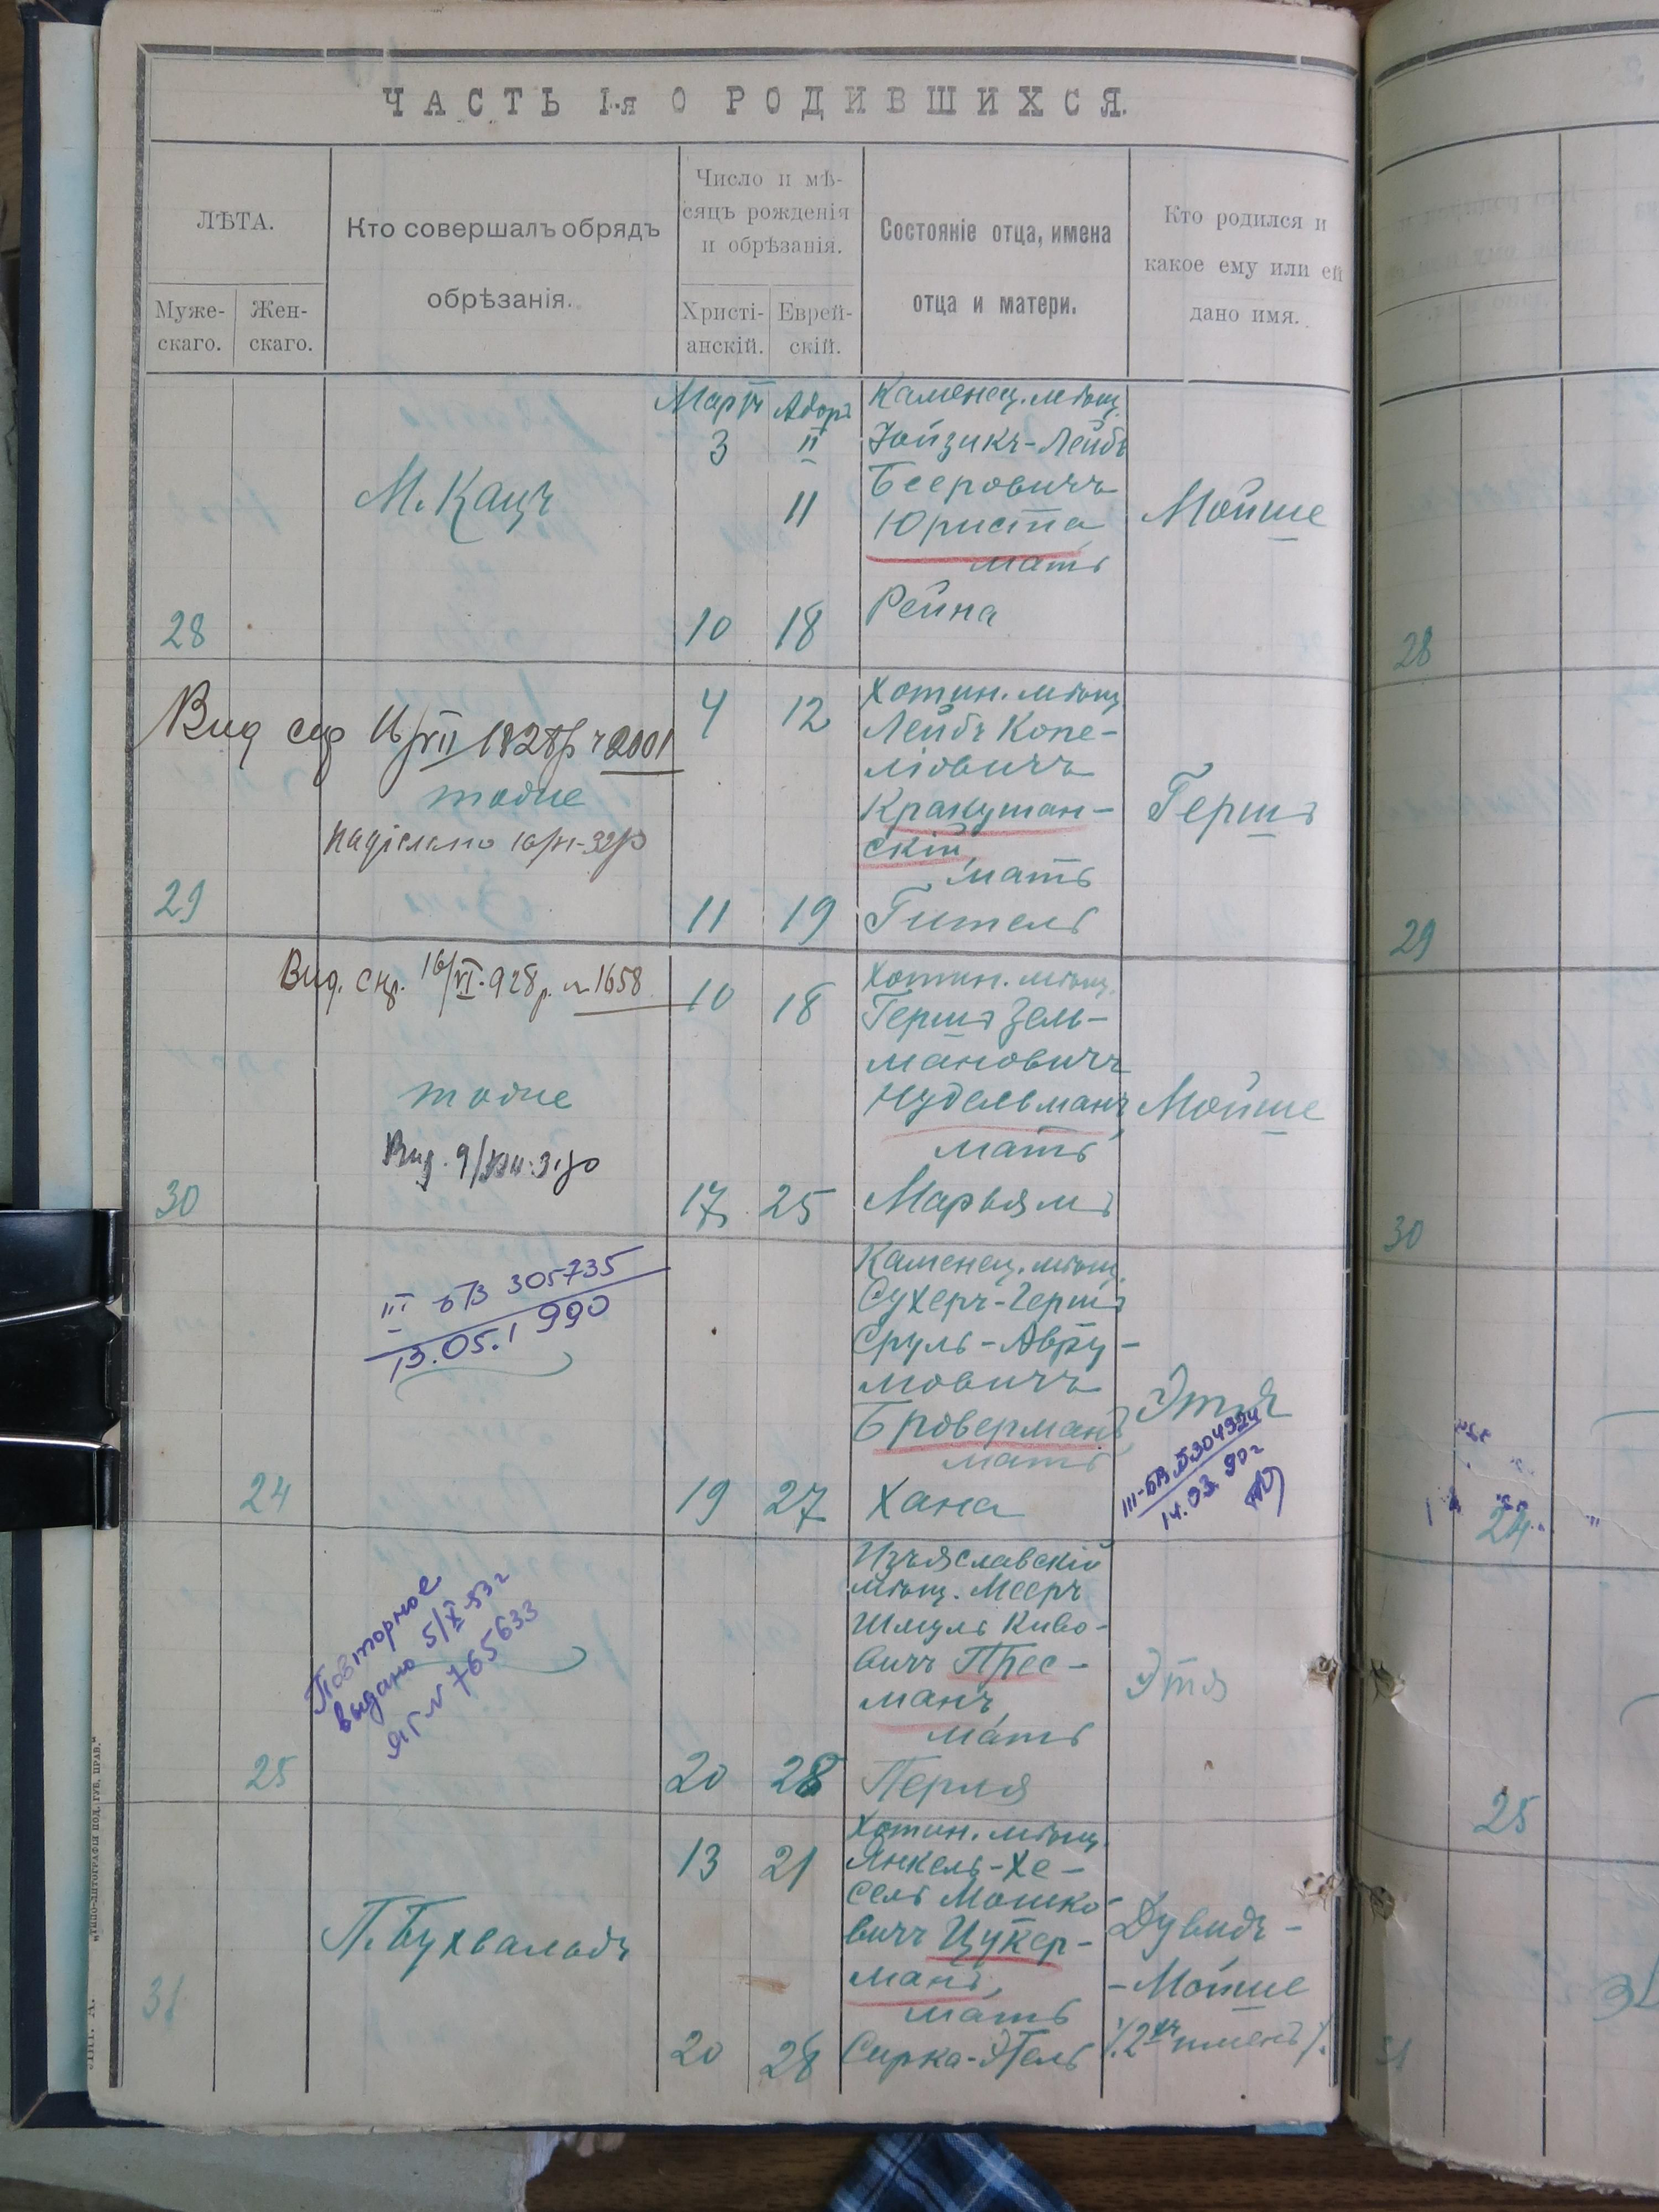 ЧАСТЬ 1-я О РОДИВШИХСЯ.
ЛѢТА.
Муже-
скаго.
Жен-
скаго.
Кто совершалъ обрядъ
обрѣзанія.
Число и мѣ-
сяцъ рожденія
и обрѣзанія.
Христі-
анскій.
Еврей-
скій.
Состояніе отца, имена
отца и матери.
Кто родился и
какое ему или ей
дано имя.
28
М. Кацъ
Мартъ
3
10
Адоръ
II
11
18
Каменец. мѣщ.
Іойзикъ-Лейбъ
Бееровичъ
Юриста
мать
Рейна
Мойше
28
29
2001
тоже
4
11
12
19
Хотин. мѣщ.
Лейбъ Копе-
ліовичъ
Кракушан-
скій,
мать
Гитель
Гершъ
29
30
Вид. 16/VI-928р. № 1658
тоже
10
17
18
25
Хотин. мѣщ.
Гершъ Зель-
мановичъ
Нудельманъ,
мать
Марьямъ
Мойше
30
24
III БВ 305735
13.05.1990
19
27
Каменец. мѣщ.
Сухеръ-Гершъ
Сруль-Авру-
мовичъ
Броверманъ,
мать
Хана
Этя
III-БВ № 304924
14.03.90г
24
25
Повторное
выдано 5/X-53г
ЯГ № 765633
20
28
Изъяславскій
мѣщ. Мееръ
Шмуль Киво-
вичъ Прес-
манъ,
мать
Перля
Этя
25
31
П. Бухвальдъ
13
20
21
28
Хотин. мѣщ.
Янкель-Хе-
сель Мошко-
вичъ Цукер-
манъ,
мать
Сурка-Этель
Дувидъ-
-Мойше
/.2хъ именъ/.
31